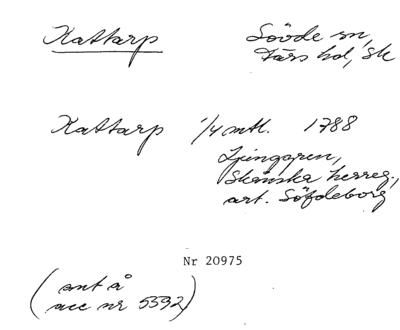 Kattarp
Sövde sn,
Färs hd, Sk
Kattarp 1/4 mtl. 1788
Ljunggren,
Skånska herreg.,
art. Söfdeborg
Nr 20975
(ant å
acc nr 5592)